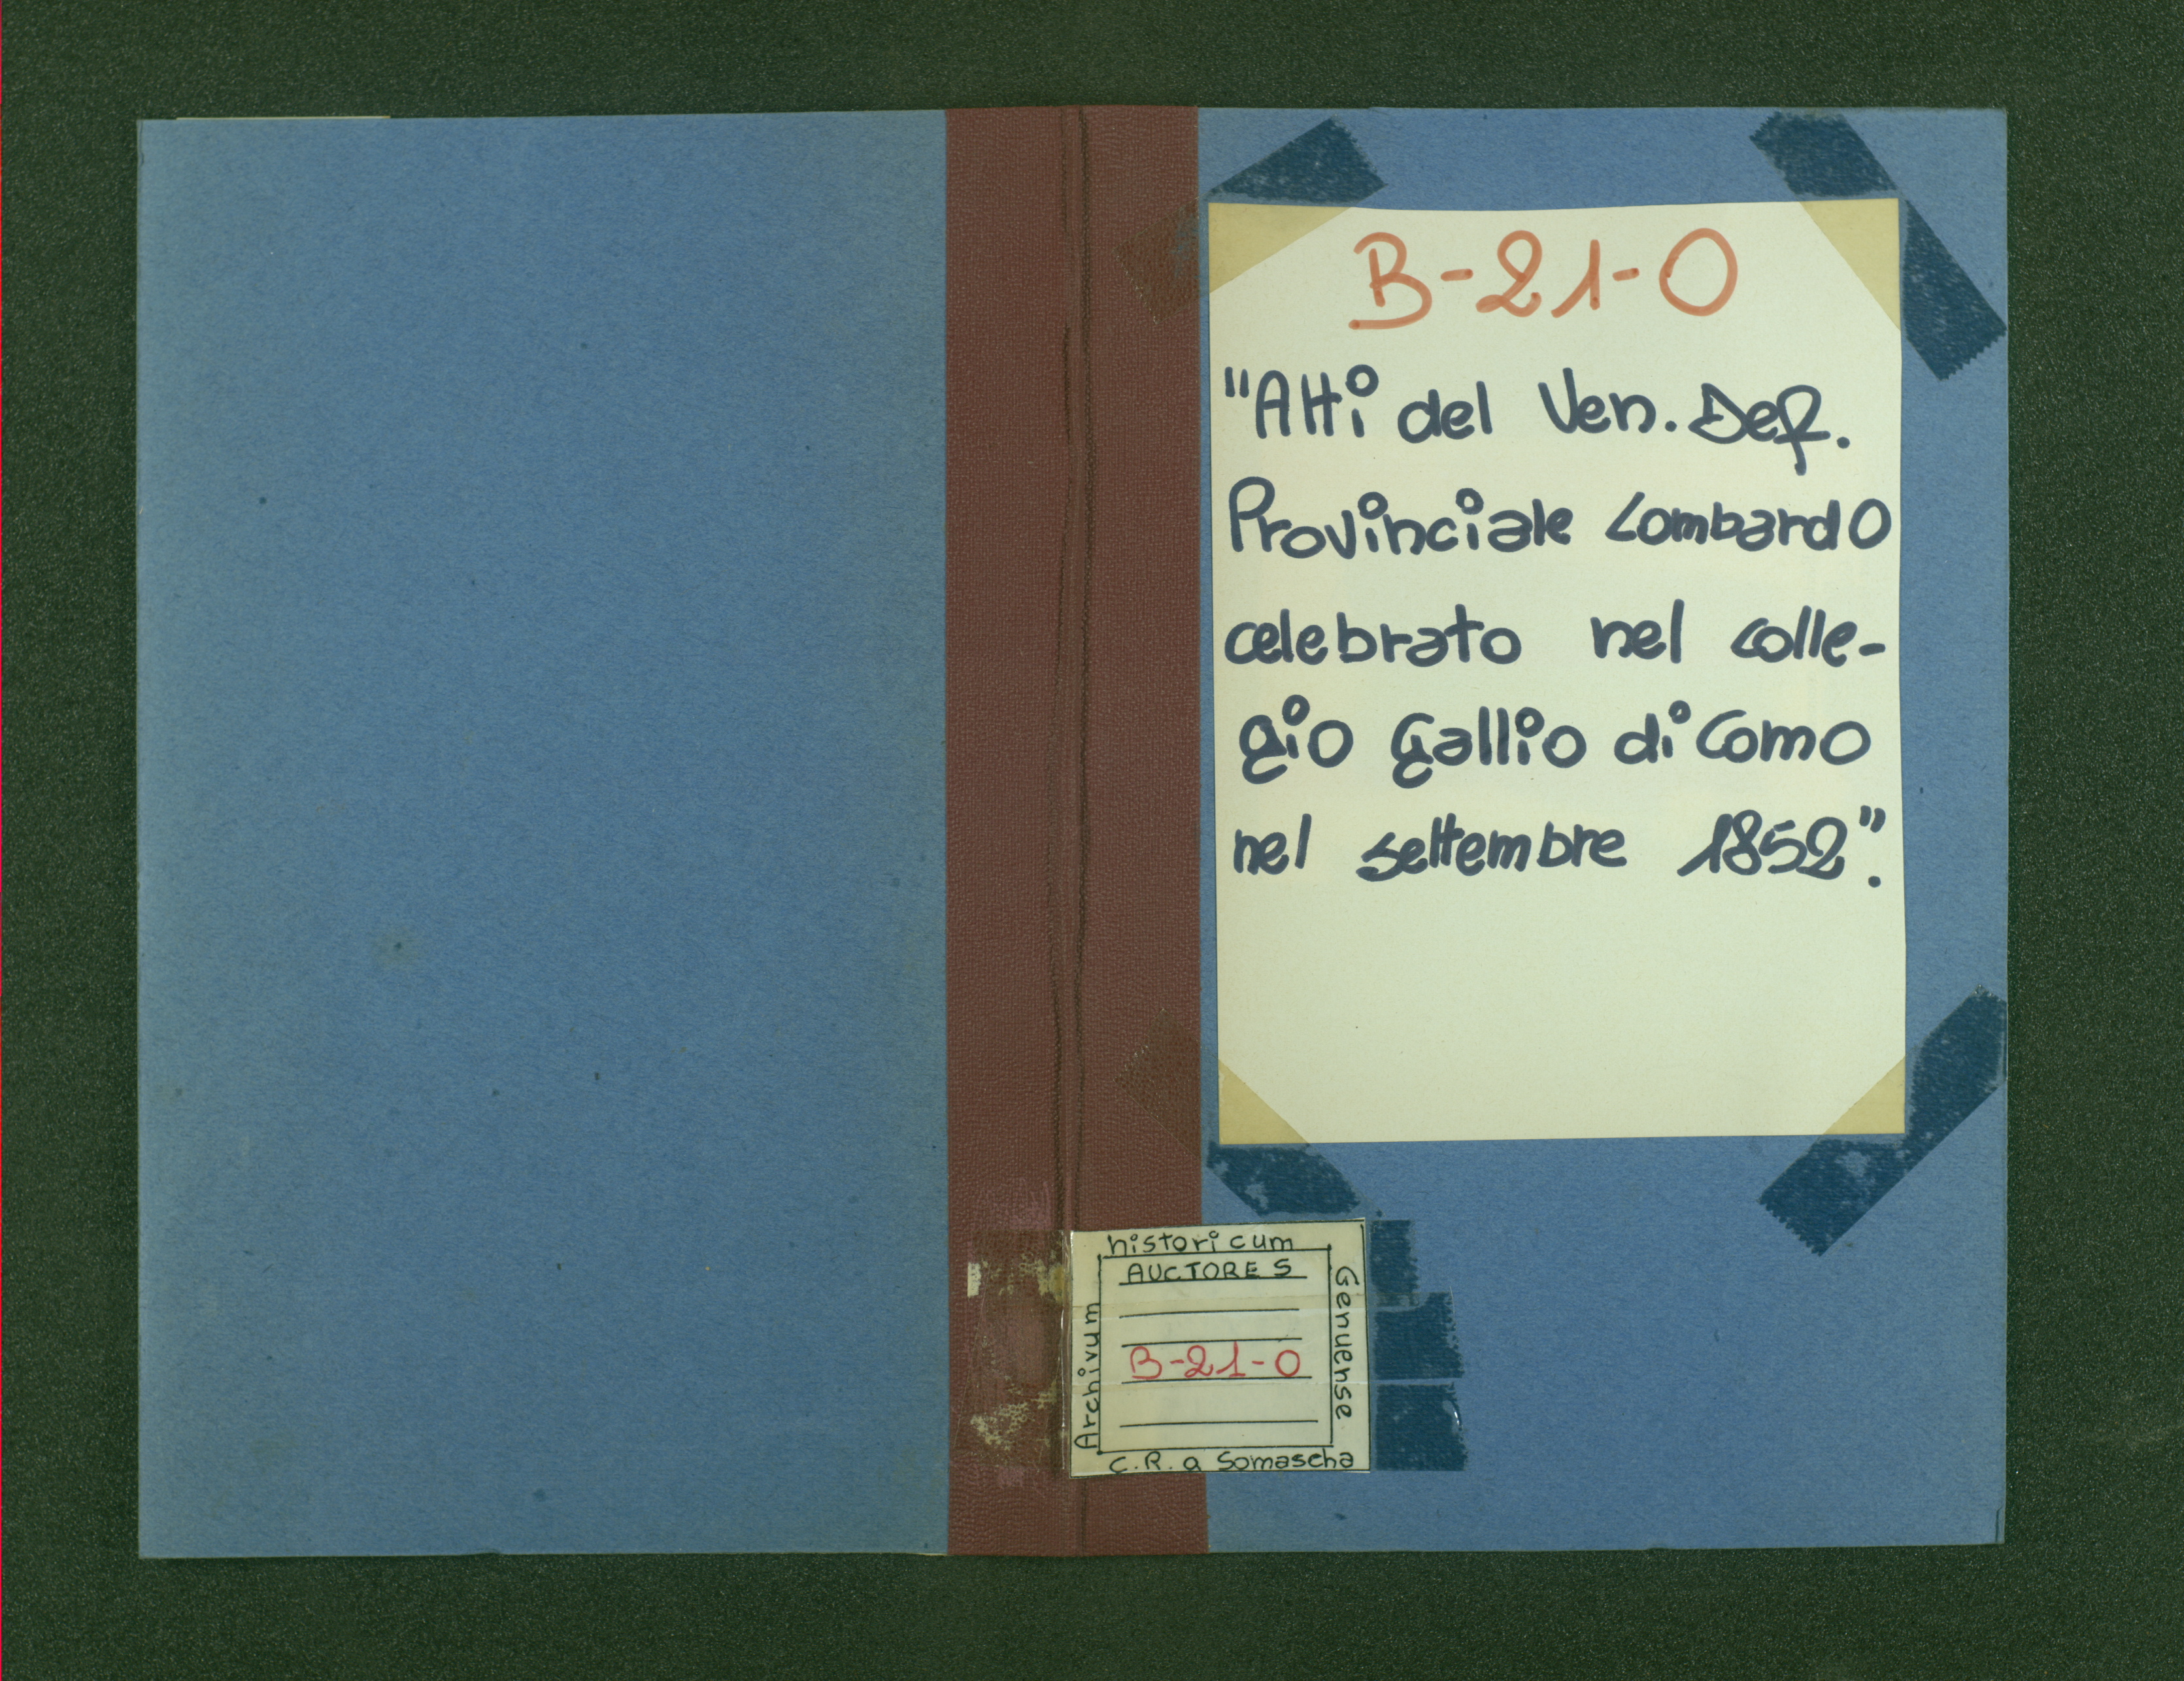 B-21-0
"Atti del Ven. Def.
Provinciale Lombardo
celebrato nel colle-
gio Gallio di Como
nel settembre 1852".
historicum
AUCTORES
Archivum
Genuense
B-21-0
C.R. a Somascha